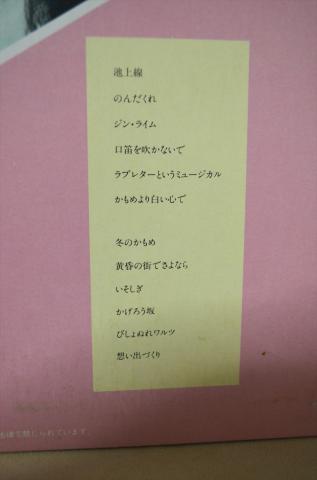 池上線
のんだくれ
ジン・ライム
口笛を吹かないで
ラブレターというミュージカル
かもめより白い心で
冬のかもめ
黄昏の街でさよなら
いそしぎ
かげろう坂
びしょぬれワルツ
想い出づくり
で禁じられています。